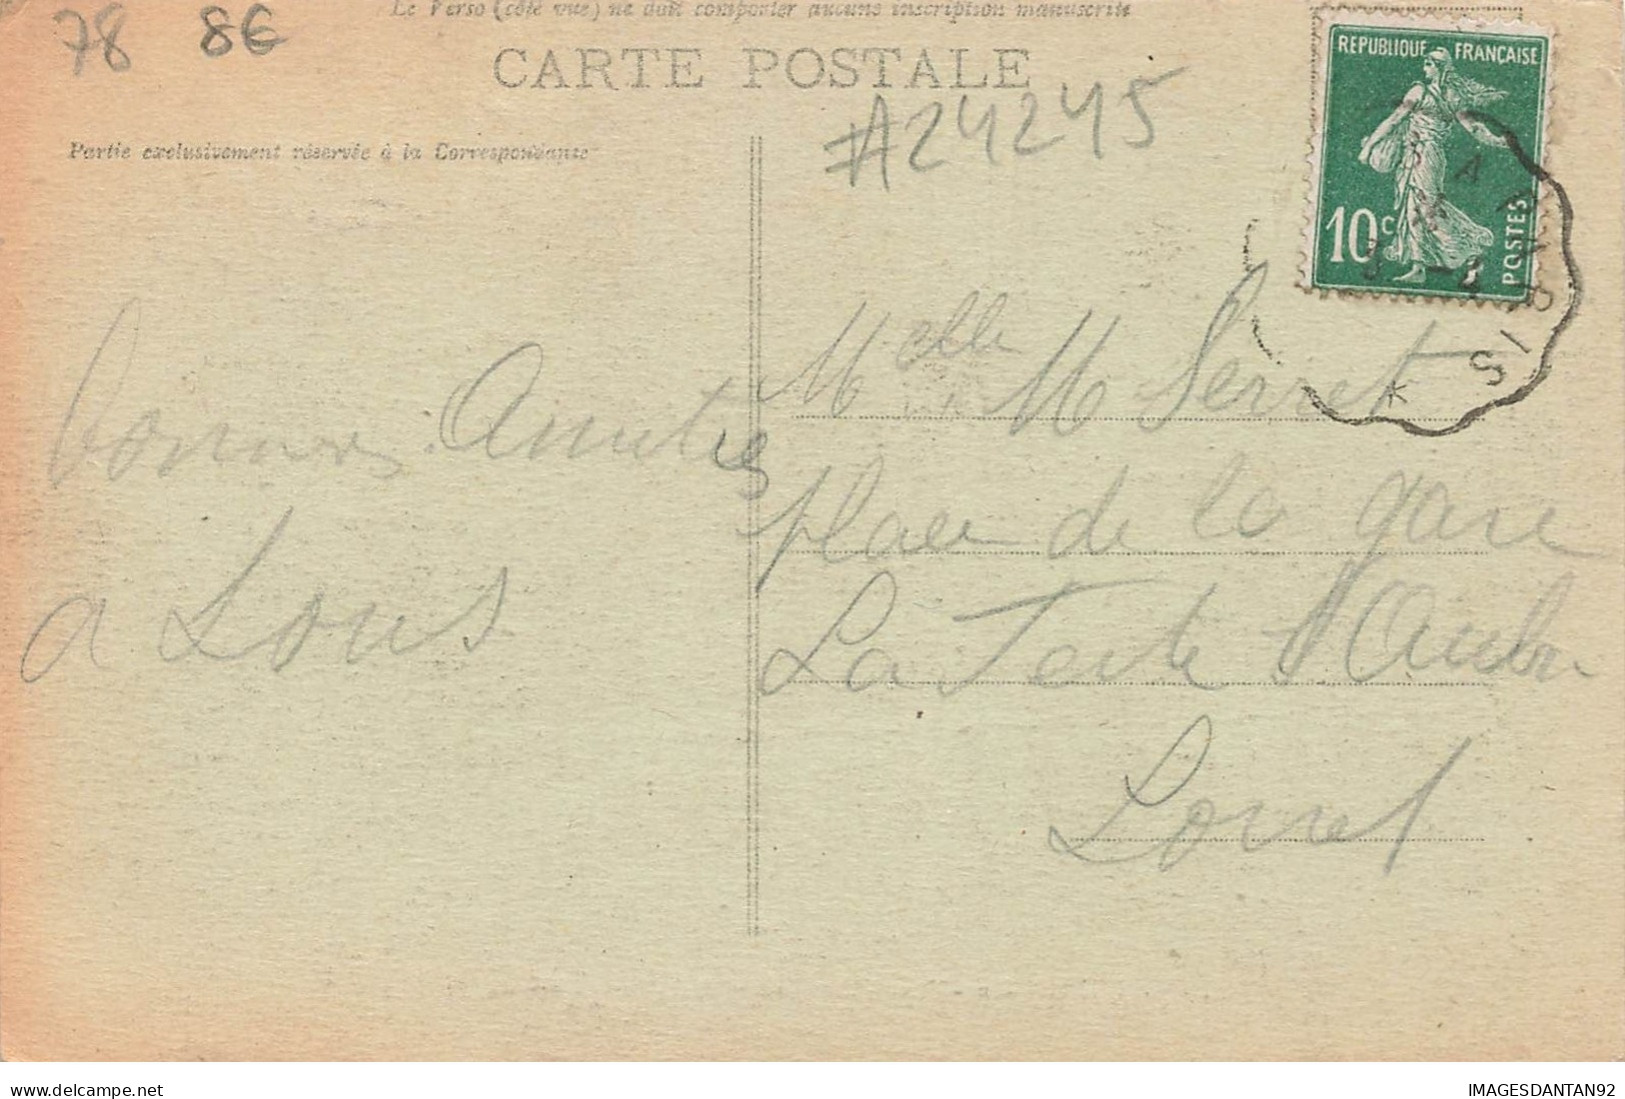 Le Verso (côté vue) ne doit comporter aucune inscription manuscrite
78 8€
CARTE POSTALE
#24245
Partie exclusivement réservée à la Correspondance
REPUBLIQUE FRANÇAISE
10c
POSTES
bonnes Amitiés
a Tous
Melle M Serret
place de la gare
La Ferte St Aubin
Loiret
www.delcampe.net
IMAGESDANTAN92